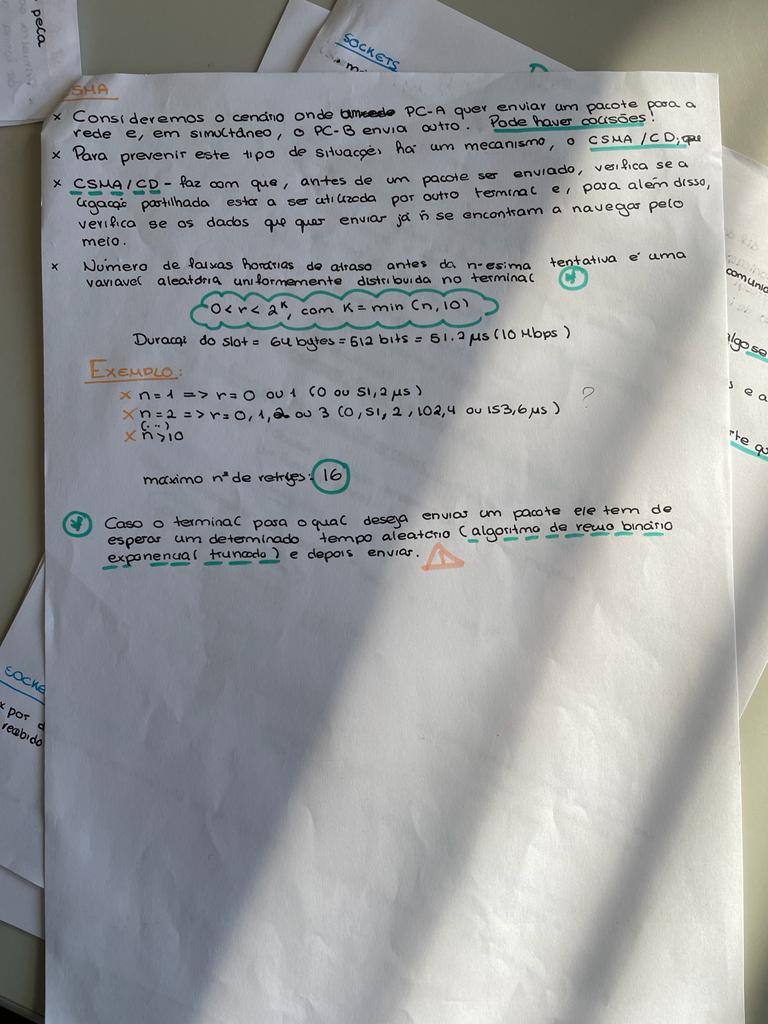 pela
SOCKETS
SMA
x Consideremos o cenário onde PC-A quer enviar um pacote para a
rede e, em simultâneo, o PC-B envia outro. Pode haver colisões!
x Para prevenir este tipo de situações há um mecanismo, o CSMA/CD; que
x CSMA/CD - faz com que, antes de um pacote ser enviado, verifica se a
ligação partilhada esta a ser utilizada por outro terminal e, para além disso,
verifica se os dados que quer enviar já ñ se encontram a navegar pelo
meio.
x Número de faixas horárias de atraso antes da n-esima tentativa é uma
variavel aleatória uniformemente distribuida no terminal *
0 < r < 2^K, com K = min (n, 10)
Duração do slot = 64 bytes = 512 bits = 51.2 µs (10 Mbps)
EXEMPLO:
x n = 1 => r = 0 ou 1 (0 ou 51,2 µs)
?
x n = 2 => r = 0, 1, 2 ou 3 (0, 51, 2, 102,4 ou 153,6 µs)
(...)
x n > 10
máximo nº de retryes: 16
* Caso o terminal para o qual deseja enviar um pacote ele tem de
esperar um determinado tempo aleatório (algoritmo de recuo binário
exponencial truncado) e depois enviar. !
SOCKE
x por
recebido
comunic
algo se
s e a
rte qu